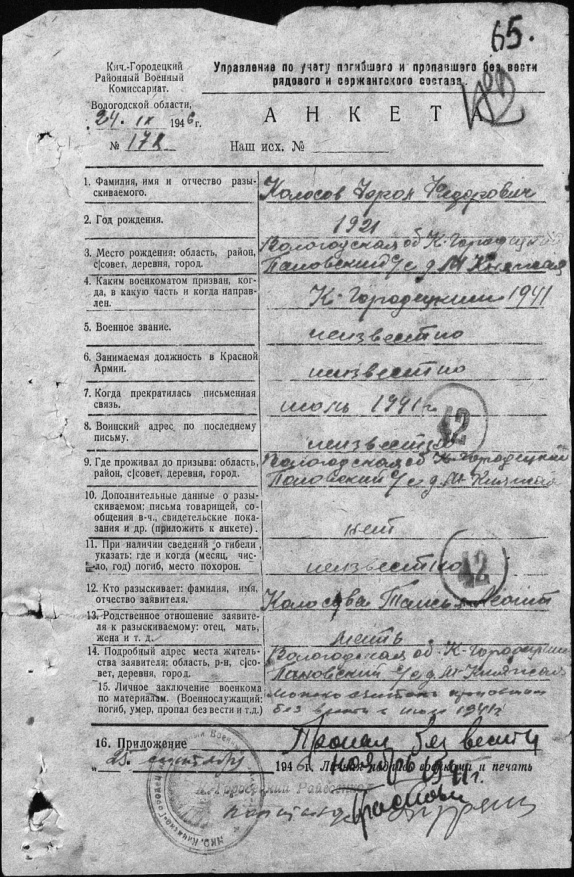 65.
Кич.-Городецкий
Районный Военный
Комиссариат.
Вологодской области,
24. IX 1946г.
№ 178
Управление по учету погибшего и пропавшего без вести
рядового и сержантского состава.
АНКЕТА
Наш исх. №
1. Фамилия, имя и отчество разы-
скиваемого.
Колосов Федорович
2. Год рождения.
1921
3. Место рождения: область, район,
с|совет, деревня, город.
Вологодская об К-Городецкий
Пановский с/с д. М Княжая
4. Каким военкоматом призван, ког-
да, в какую часть и когда направ-
лен.
К-Городецким 1941
5. Военное звание.
неизвестно
6. Занимаемая должность в Красной
Армии.
неизвестно
7. Когда прекратилась письменная
связь.
1941 г
8. Воинский адрес по последнему
письму.
неизвестен
42
9. Где проживал до призыва: область,
район, с|совет, деревня, город.
Вологодская об К-Городецкий
Пановский с/с д. М-Княжая
10. Дополнительные данные о разы-
скиваемом: письма товарищей, со-
общения в-ч., свидетельские пока-
зания и др. (приложить к анкете).
нет
11. При наличии сведений о гибели,
указать: где и когда (месяц, чис-
ло, год) погиб, место похорон.
неизвестно
42
12. Кто разыскивает: фамилия, имя,
отчество заявителя.
Колосова
13. Родственное отношение заявите-
ля к разыскиваемому: отец, мать,
жена и т. д.
мать
14. Подробный адрес места житель-
ства заявителя: область, р-н, с|со-
вет, деревня, город.
Вологодская об. К-Городецкий
Пановский с/с д. М Княжая
15. Личное заключение военкома
по материалам. (Военнослужащий:
погиб, умер, пропал без вести и т.д.)
можно считать пропавшим
без вести с 1941г
16. Приложение
Пропал без вести
25. сентября 1946г. Личная подпись военкома и печать
ноябрь 1941г.
Городецкий Райвоенком